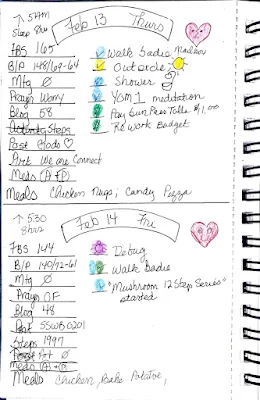 ↑ 5AM
Sleep 8hrs
Feb 13 Thurs
FBS 165
B/P 148/69-64
Mtg Ø
Prayer Worry
Blog 58
Activity Steps
Post Gods ♡
Art We are Connect
Meds (A+P)
Walk Sadie
Out circle
Shower
YOM 1 meditation
Pay Sun Pass Tolls $1.00
ReWork Budget
Meals Chicken Nugs, Candy Pizza
↑ 530
8hrs
Feb 14 Fri
FBS 144
B/P 140/72-61
Mtg Ø
Prayer OF
Blog 48
Post SSWB0201
Steps 1997
Post Art Ø
meds (A+P)
Debug
Walk Sadie
"Mushroom 12 Step Series"
started
Meals Chicken, Bake Potatoe,